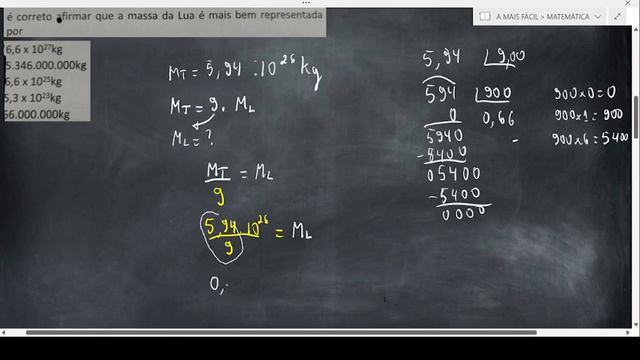 é correto afirmar que a massa da Lua é mais bem representada
por
6,6 x 10²⁷kg
5.346.000.000kg
6,6 x 10²⁵kg
5,3 x 10²³kg
66.000.000kg
A MAIS FÁCIL > MATEMÁTICA
MT = 5,94 · 10²⁶ kg
MT = 9 · ML
ML = ?
MT/9 = ML
5,94 · 10²⁶/9 = ML
0,
5,94 9,00
594 900
0 0,66
5940
-5400
05400
-5400
0000
900x0=0
900x1=900
900x6=5400